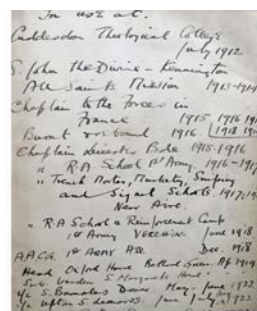 In use at.
Cuddesdon Theological College
July 1912.
S. John the Divine - Kennington
All Saints Mission 1913-1914
Chaplain to the Forces in
France 1915 1916 191
Burnt & rebound 1916. 1918 191
Chaplain Leicester Bde 1915-1916
" R.A. School 1st Army. 1916-191
" Trench Mortar, Musketry, Sniping
and Signal Schools. 1917, 19
Near Aire.
" R A School & Reinforcement Camp
1st Army VERCHIN. June 1918
A.A.C.G. 1st Army Dec. 1918
Head Oxford House Bethnal Green. Ap 1919
Sub. Warden S. Margarets
S. Barnabas Dover. May. June 1922
S. Leonards. June July 1922